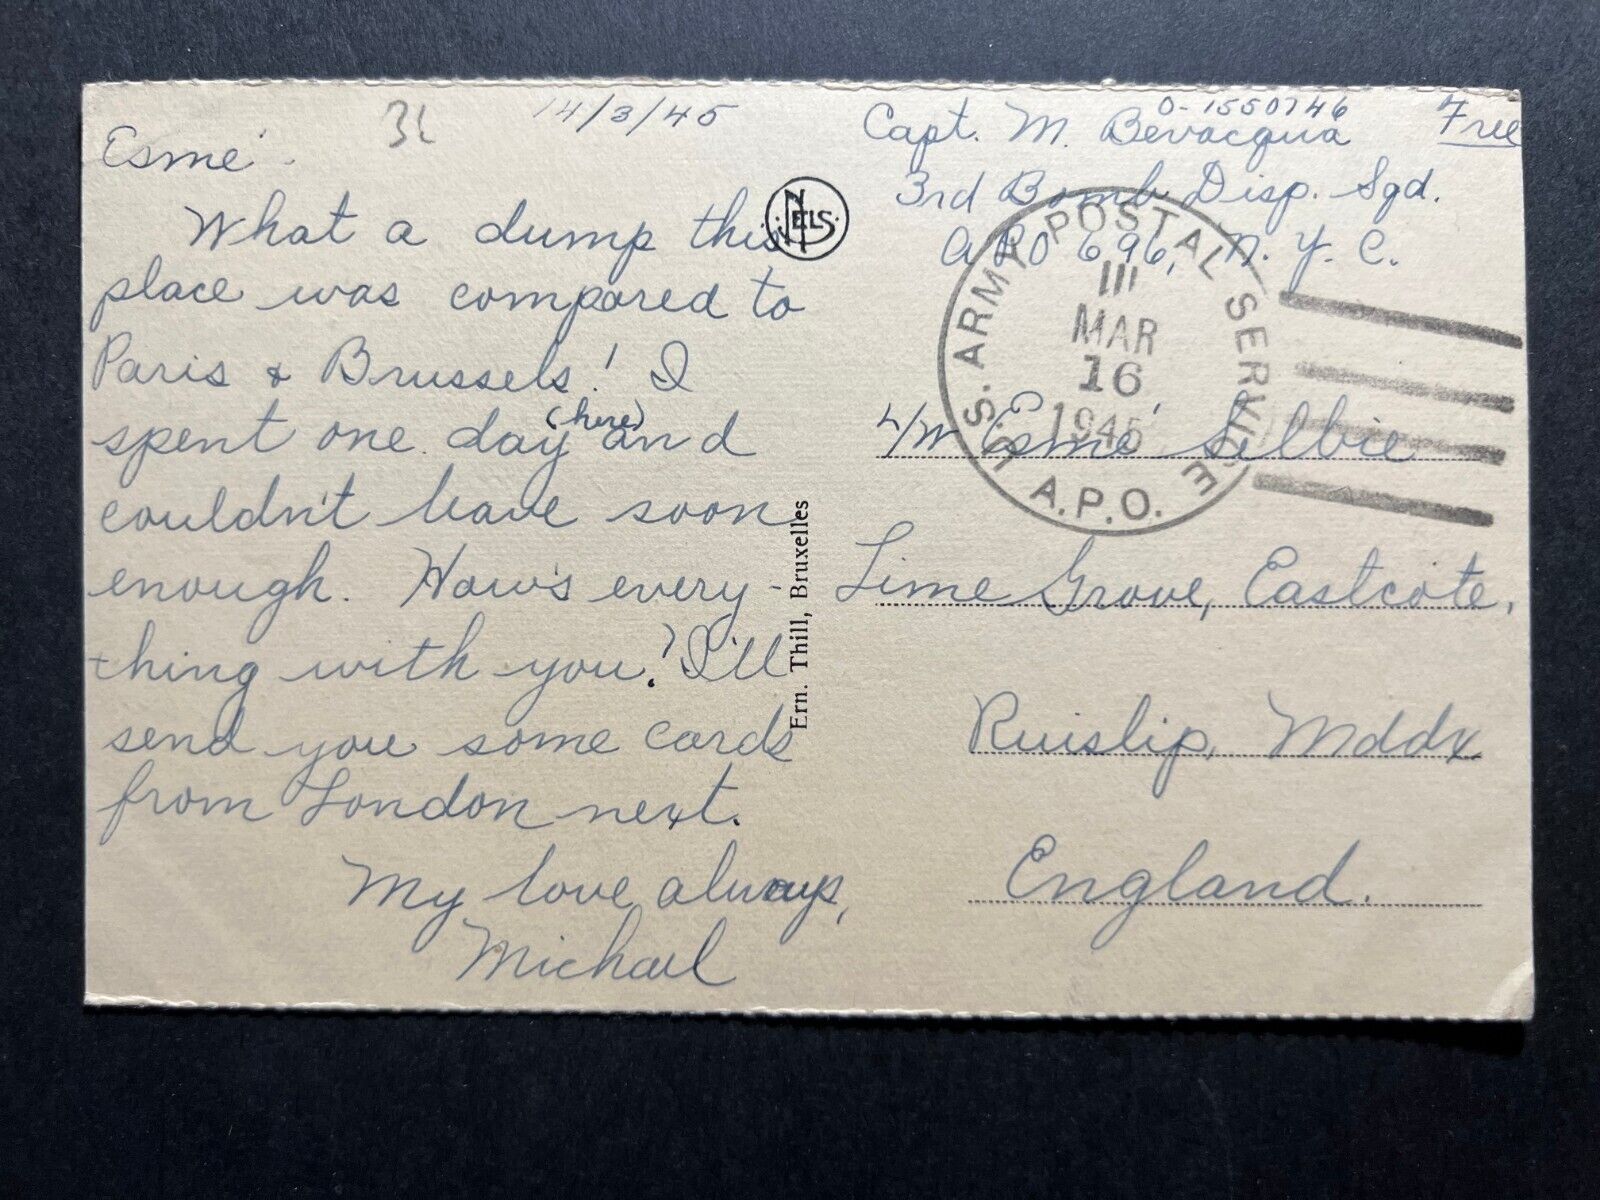 14/3/45
Esmé -
What a dump this
place was compared to
Paris & Brussels! I
spent one day (here) and
couldn't leave soon
enough. How's every-
thing with you? I'll
send you some cards
from London next.
My love always,
Michael
NELS
Ern. Thill, Bruxelles
O-1550746
Capt. M. Bevacqua
Free
3rd Bomb Disp. Sqd.
APO 696, N.Y.C.
U.S. ARMY POSTAL SERVICE
A.P.O.
MAR
16
1945
Esmé Selbie
Lime Grove, Eastcote,
Ruislip, Mddx
England.